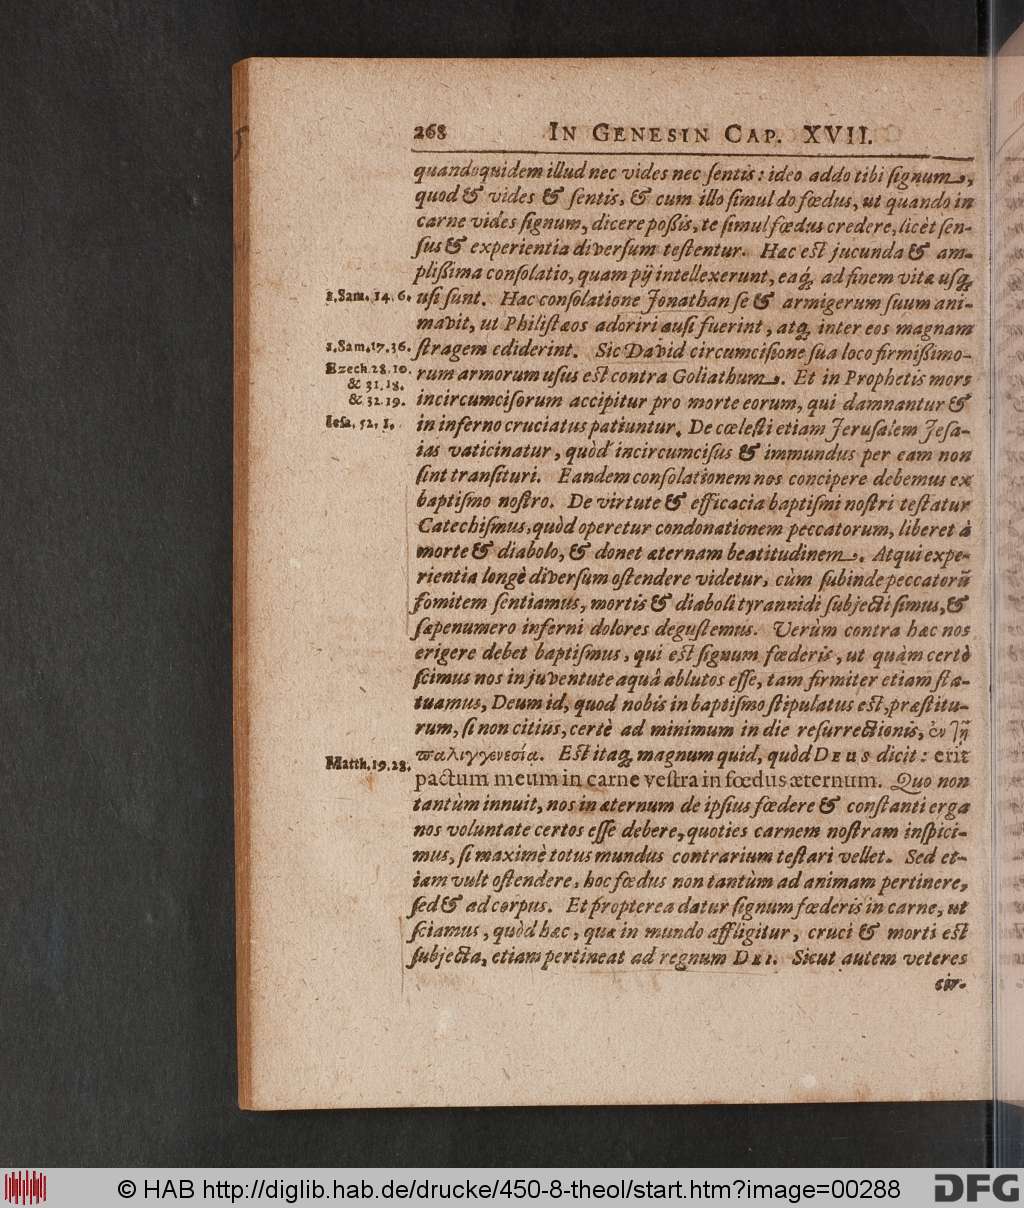 268 IN GENESIN CAP. XVII.
quandoquidem illud nec vides nec ſentis: ideo addo tibi ſignum,
quod & vides & ſentis, & cum illo ſimul do fœdus, ut quando in
carne vides ſignum, dicere poßis, te ſimul fœdus credere, licèt ſen-
ſus & experientia diverſum teſtentur. Hæc eſt jucunda & am-
plißima conſolatio, quam pij intellexerunt, eaq́; ad finem vitæ uſq́;
1. Sam. 14. 6. uſi ſunt. Hac conſolatione Jonathan ſe & armigerum ſuum ani-
mavit, ut Philiſtæos adoriri auſi fuerint, atq́; inter eos magnam
1. Sam. 17. 36. ſtragem ediderint. Sic David circumciſione ſua loco firmißimo-
Ezech. 28. 10. rum armorum uſus eſt contra Goliathum. Et in Prophetis mors
& 31. 18.
& 32. 19. incircumciſorum accipitur pro morte eorum, qui damnantur &
Ieſa. 52. 1. in inferno cruciatus patiuntur. De cœleſti etiam Jeruſalem Jeſa-
ias vaticinatur, quòd incircumciſus & immundus per eam non
ſint tranſituri. Eandem conſolationem nos concipere debemus ex
baptiſmo noſtro. De virtute & efficacia baptiſmi noſtri teſtatur
Catechiſmus, quòd operetur condonationem peccatorum, liberet à
morte & diabolo, & donet æternam beatitudinem. Atqui expe-
rientia longè diverſum oſtendere videtur, cùm ſubinde peccatorũ
fomitem ſentiamus, mortis & diaboli tyrannidi ſubjecti ſimus, &
ſæpenumero inferni dolores deguſtemus. Verùm contra hæc nos
erigere debet baptiſmus, qui eſt ſignum fœderis, ut quàm certò
ſcimus nos in juventute aquâ ablutos eſſe, tam firmiter etiam ſta-
tuamus, Deum id, quod nobis in baptiſmo ſtipulatus eſt, præſtitu-
rum, ſi non citius, certè ad minimum in die reſurrectionis, ἐν τῇ
Matth. 19. 28. παλιγγενεσίᾳ. Eſt itaq́; magnum quid, quòd DEUS dicit: erit
pactum meum in carne veſtra in fœdus æternum. Quo non
tantùm innuit, nos in æternum de ipſius fœdere & conſtanti erga
nos voluntate certos eſſe debere, quoties carnem noſtram inſpici-
mus, ſi maximè totus mundus contrarium teſtari vellet. Sed et-
iam vult oſtendere, hoc fœdus non tantùm ad animam pertinere,
ſed & ad corpus. Et propterea datur ſignum fœderis in carne, ut
ſciamus, quòd hæc, quæ in mundo affligitur, cruci & morti eſt
ſubjecta, etiam pertineat ad regnum DEI. Sicut autem veteres
cir-
© HAB http://diglib.hab.de/drucke/450-8-theol/start.htm?image=00288
DFG